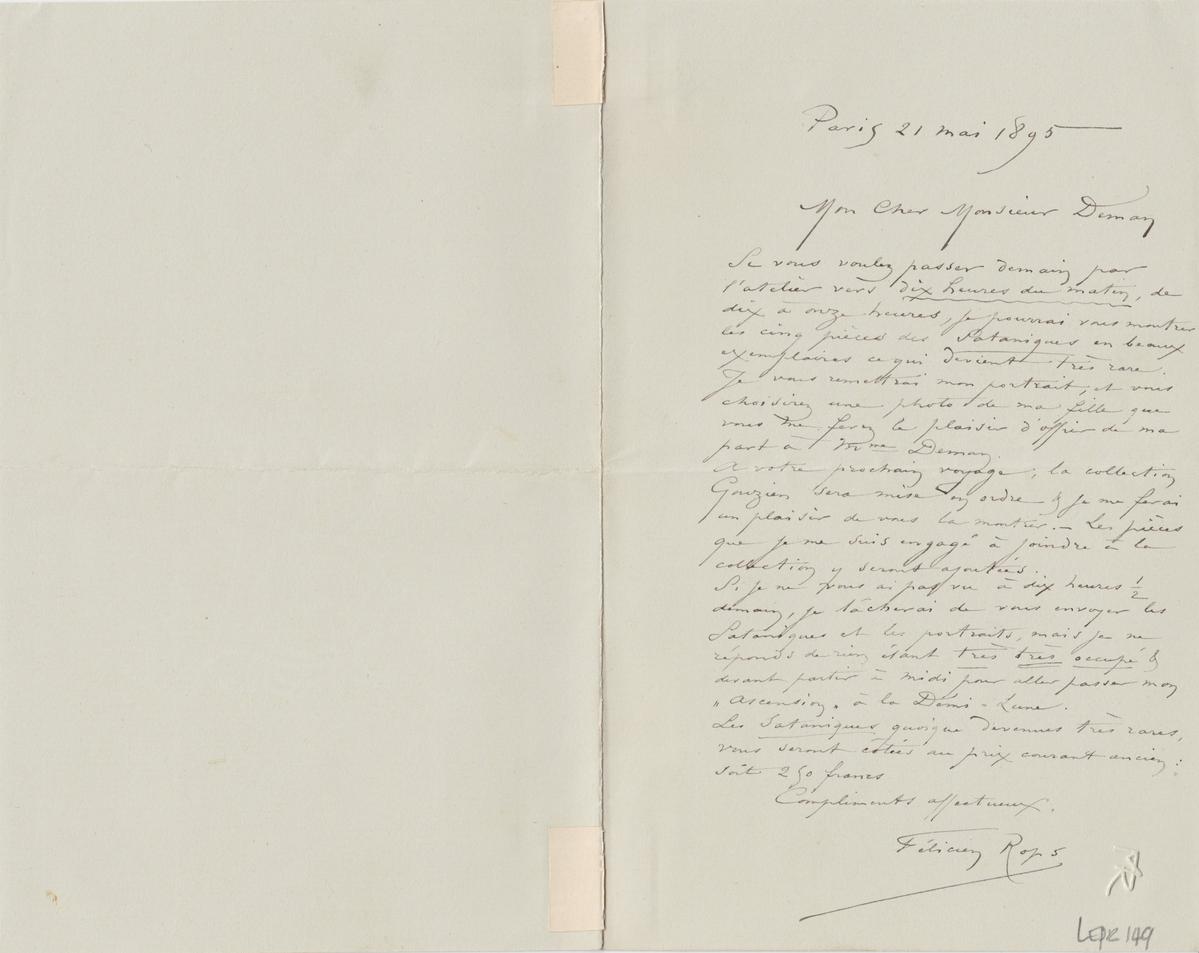 Paris 21 mai 1895
Mon Cher Monsieur Deman
Si vous voulez passer demain par
l'atelier vers dix heures du matin, de
dix à onze heures, je pourrai vous montrer
les cinq pièces des Sataniques en beaux
exemplaires ce qui devient très rare.
Je vous remettrai mon portrait, et vous
choisirez une photo de ma fille que
vous me ferez le plaisir d'offrir de ma
part à Mme Deman.
A votre prochain voyage, la collection
Gouzien sera mise en ordre & je me ferai
un plaisir de vous la montrer. – Les pièces
que je me suis engagé à joindre à la
collection y seront ajoutées.
Si je ne vous ai pas vu à dix heures 1/2
demain, je tâcherai de vous envoyer les
Sataniques et les portraits, mais je ne
réponds de rien étant très très occupé &
devant partir à midi pour aller passer mon
„Ascension„ à la Demi-Lune.
Les Sataniques quoique devenues très rares,
vous seront côtées au prix courant ancien :
soit 250 francs
Compliments affectueux.
Félicien Rops
LEpr 149